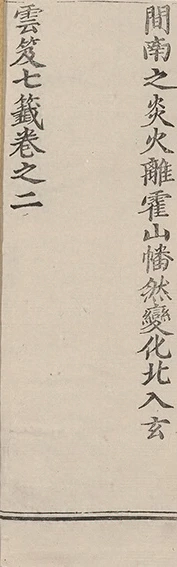 間南之炎火離霍山幡然變化北入玄
雲笈七籤卷之二